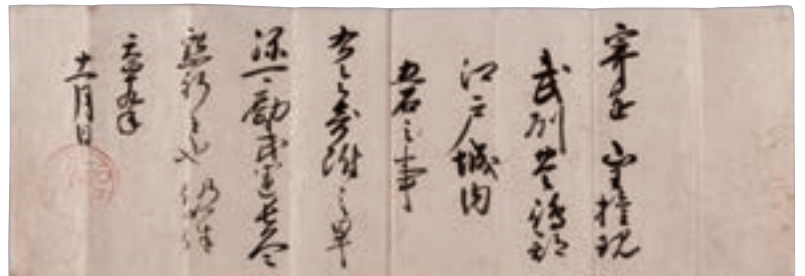 寄進 山王権現
武州豊嶋郡
江戸城内
五石之事
右令寄附之畢
可励武運長久
懇祈者也仍如件
天正十九年
十一月日